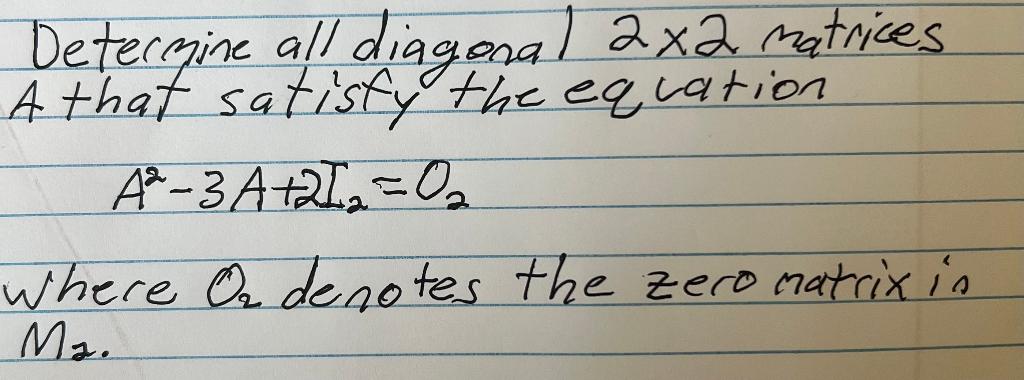 Determine all diagonal 2x2 matrices
A that satisfy the equation
A²-3A+2I₂=O₂
where O₂ denotes the zero matrix in
M₂.